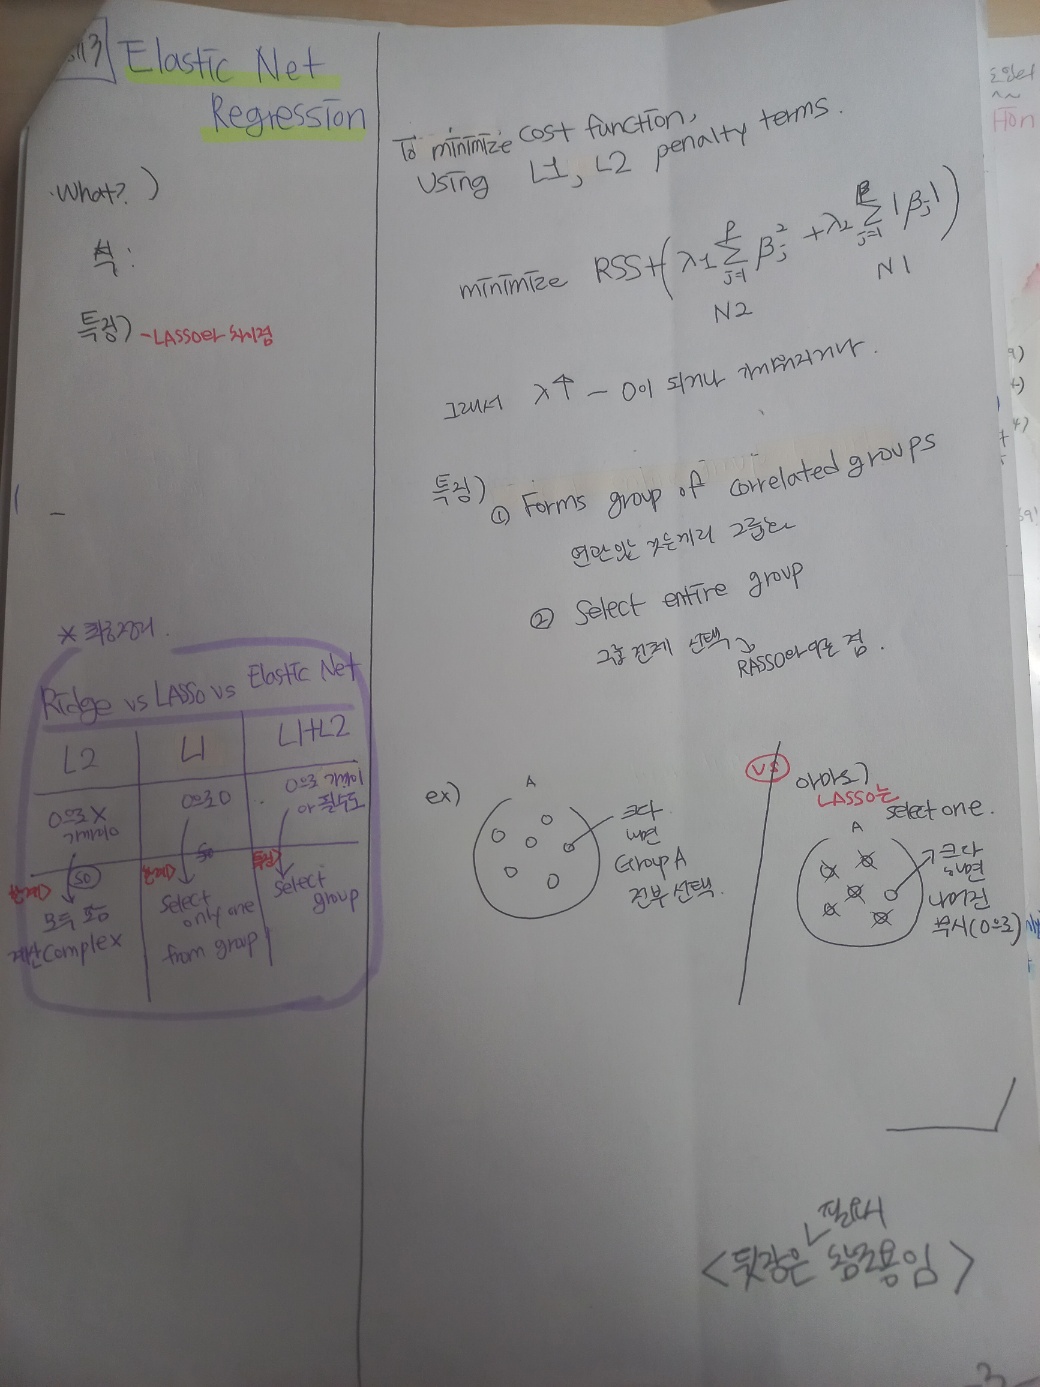 Elastic Net
Regression
What? )
식 :
특징) - LASSO와 차이점
To minimize cost function,
Using L1, L2 penalty terms.
minimize RSS+(λ1 Σ βj² + λ2 Σ |βj|)
p
j=1
p
j=1
N2
N1
그래서 λ↑ - 0이 되거나 가까워지거나.
특징)
① Forms group of correlated groups
연관있는 것들끼리 그룹
② Select entire group
그룹 전체 선택
RASSO와 다른 점.
* 최종정리.
Ridge vs LASSO vs Elastic Net
L2 L1 L1+L2
0으로 X
가까이
0으로 O
0으로 가까이
so
so
모두 포함
계산 Complex
Select
only one
from group
특징)
Select
group
ex)
A
크다
하면
Group A
전부 선택.
VS
LASSO는
select one.
A
크다
하면
나머진
무시(0으로)
필요시
<뒷장은 참고용임>
3